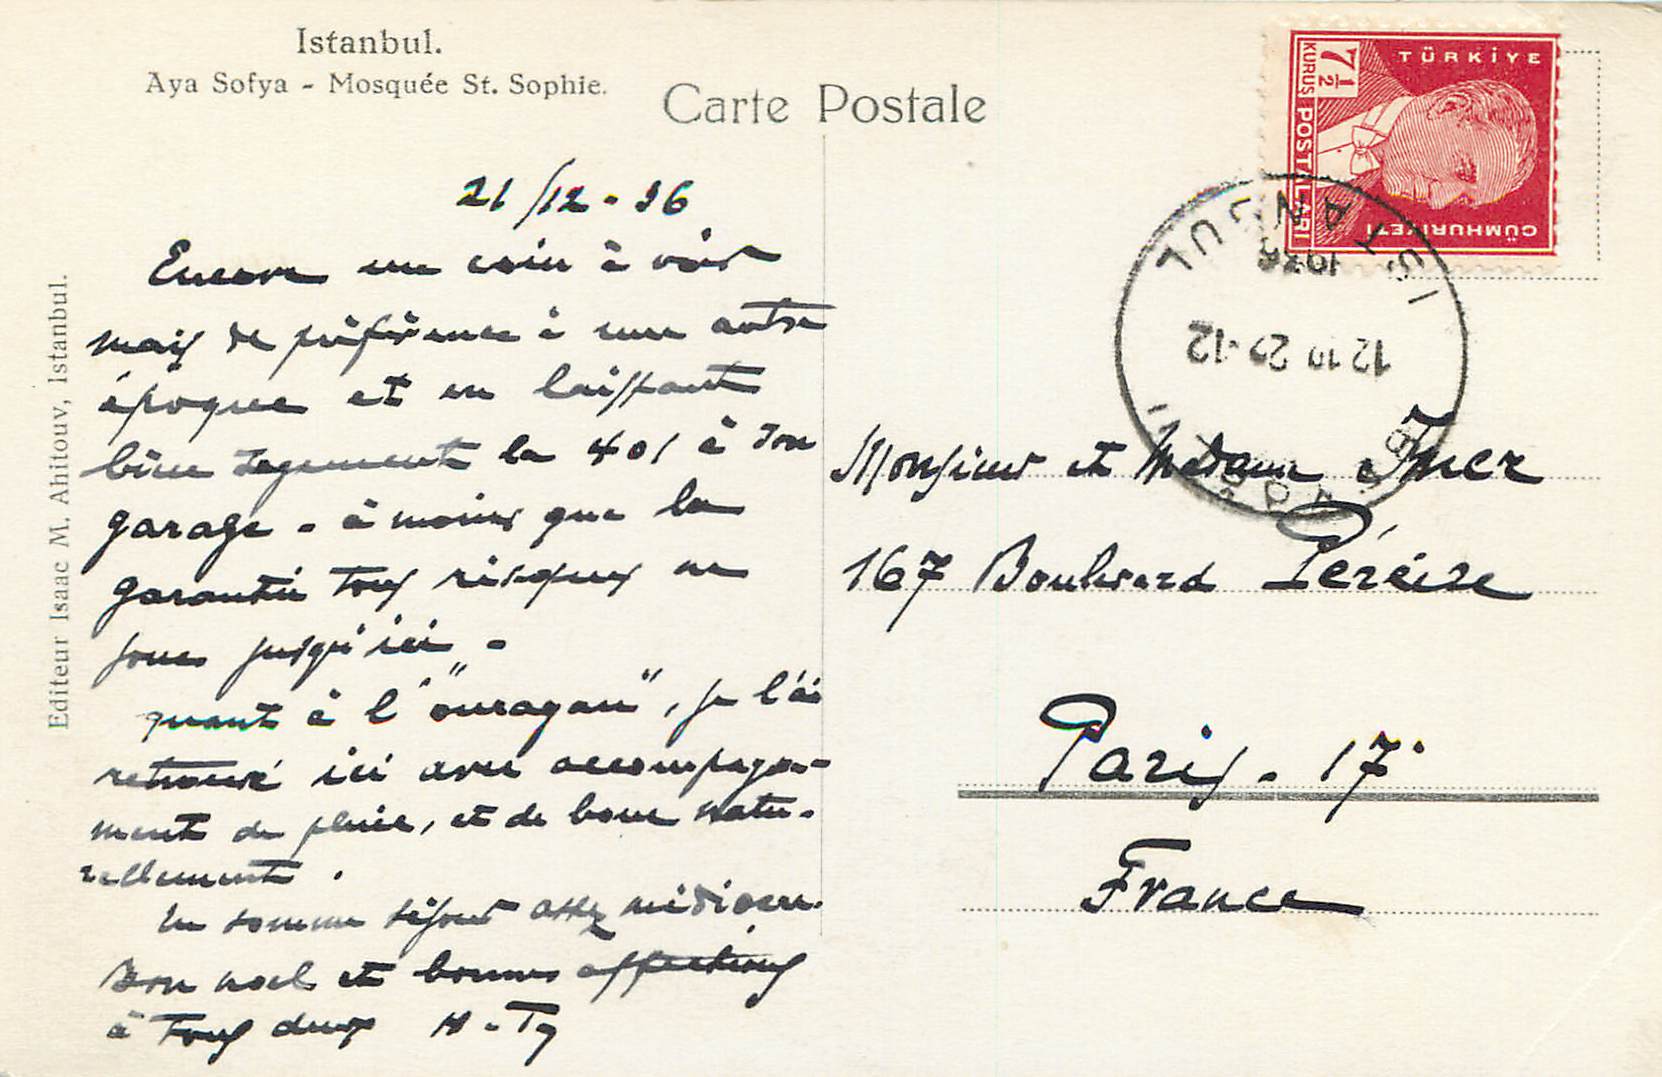 Istanbul.
Aya Sofya - Mosquée St. Sophie.
Carte Postale
TÜRKİYE
7 1/2
KURUŞ POSTALARI
CÜMHURİYETİ
ISTANBUL
1936
12 10 2 -12
21/12 - 36
Encore un coin à voir
mais de préférence à une autre
époque et en laissant
bien sagement la 401 à son
garage - à moins que la
garantie tous risques ne
joue jusqu'ici -
quant à l'"ouragan", je l'ai
retrouvé ici avec accompagne-
ment de pluie, et de boue natu-
rellement.
En somme séjour assez médiocre.
Bon noel et bonnes affections
à tous deux H-Ty
Monsieur et Madame
167 Boulevard Péreire
Paris - 17e
France
Editeur Isaac M. Ahitouv, Istanbul.